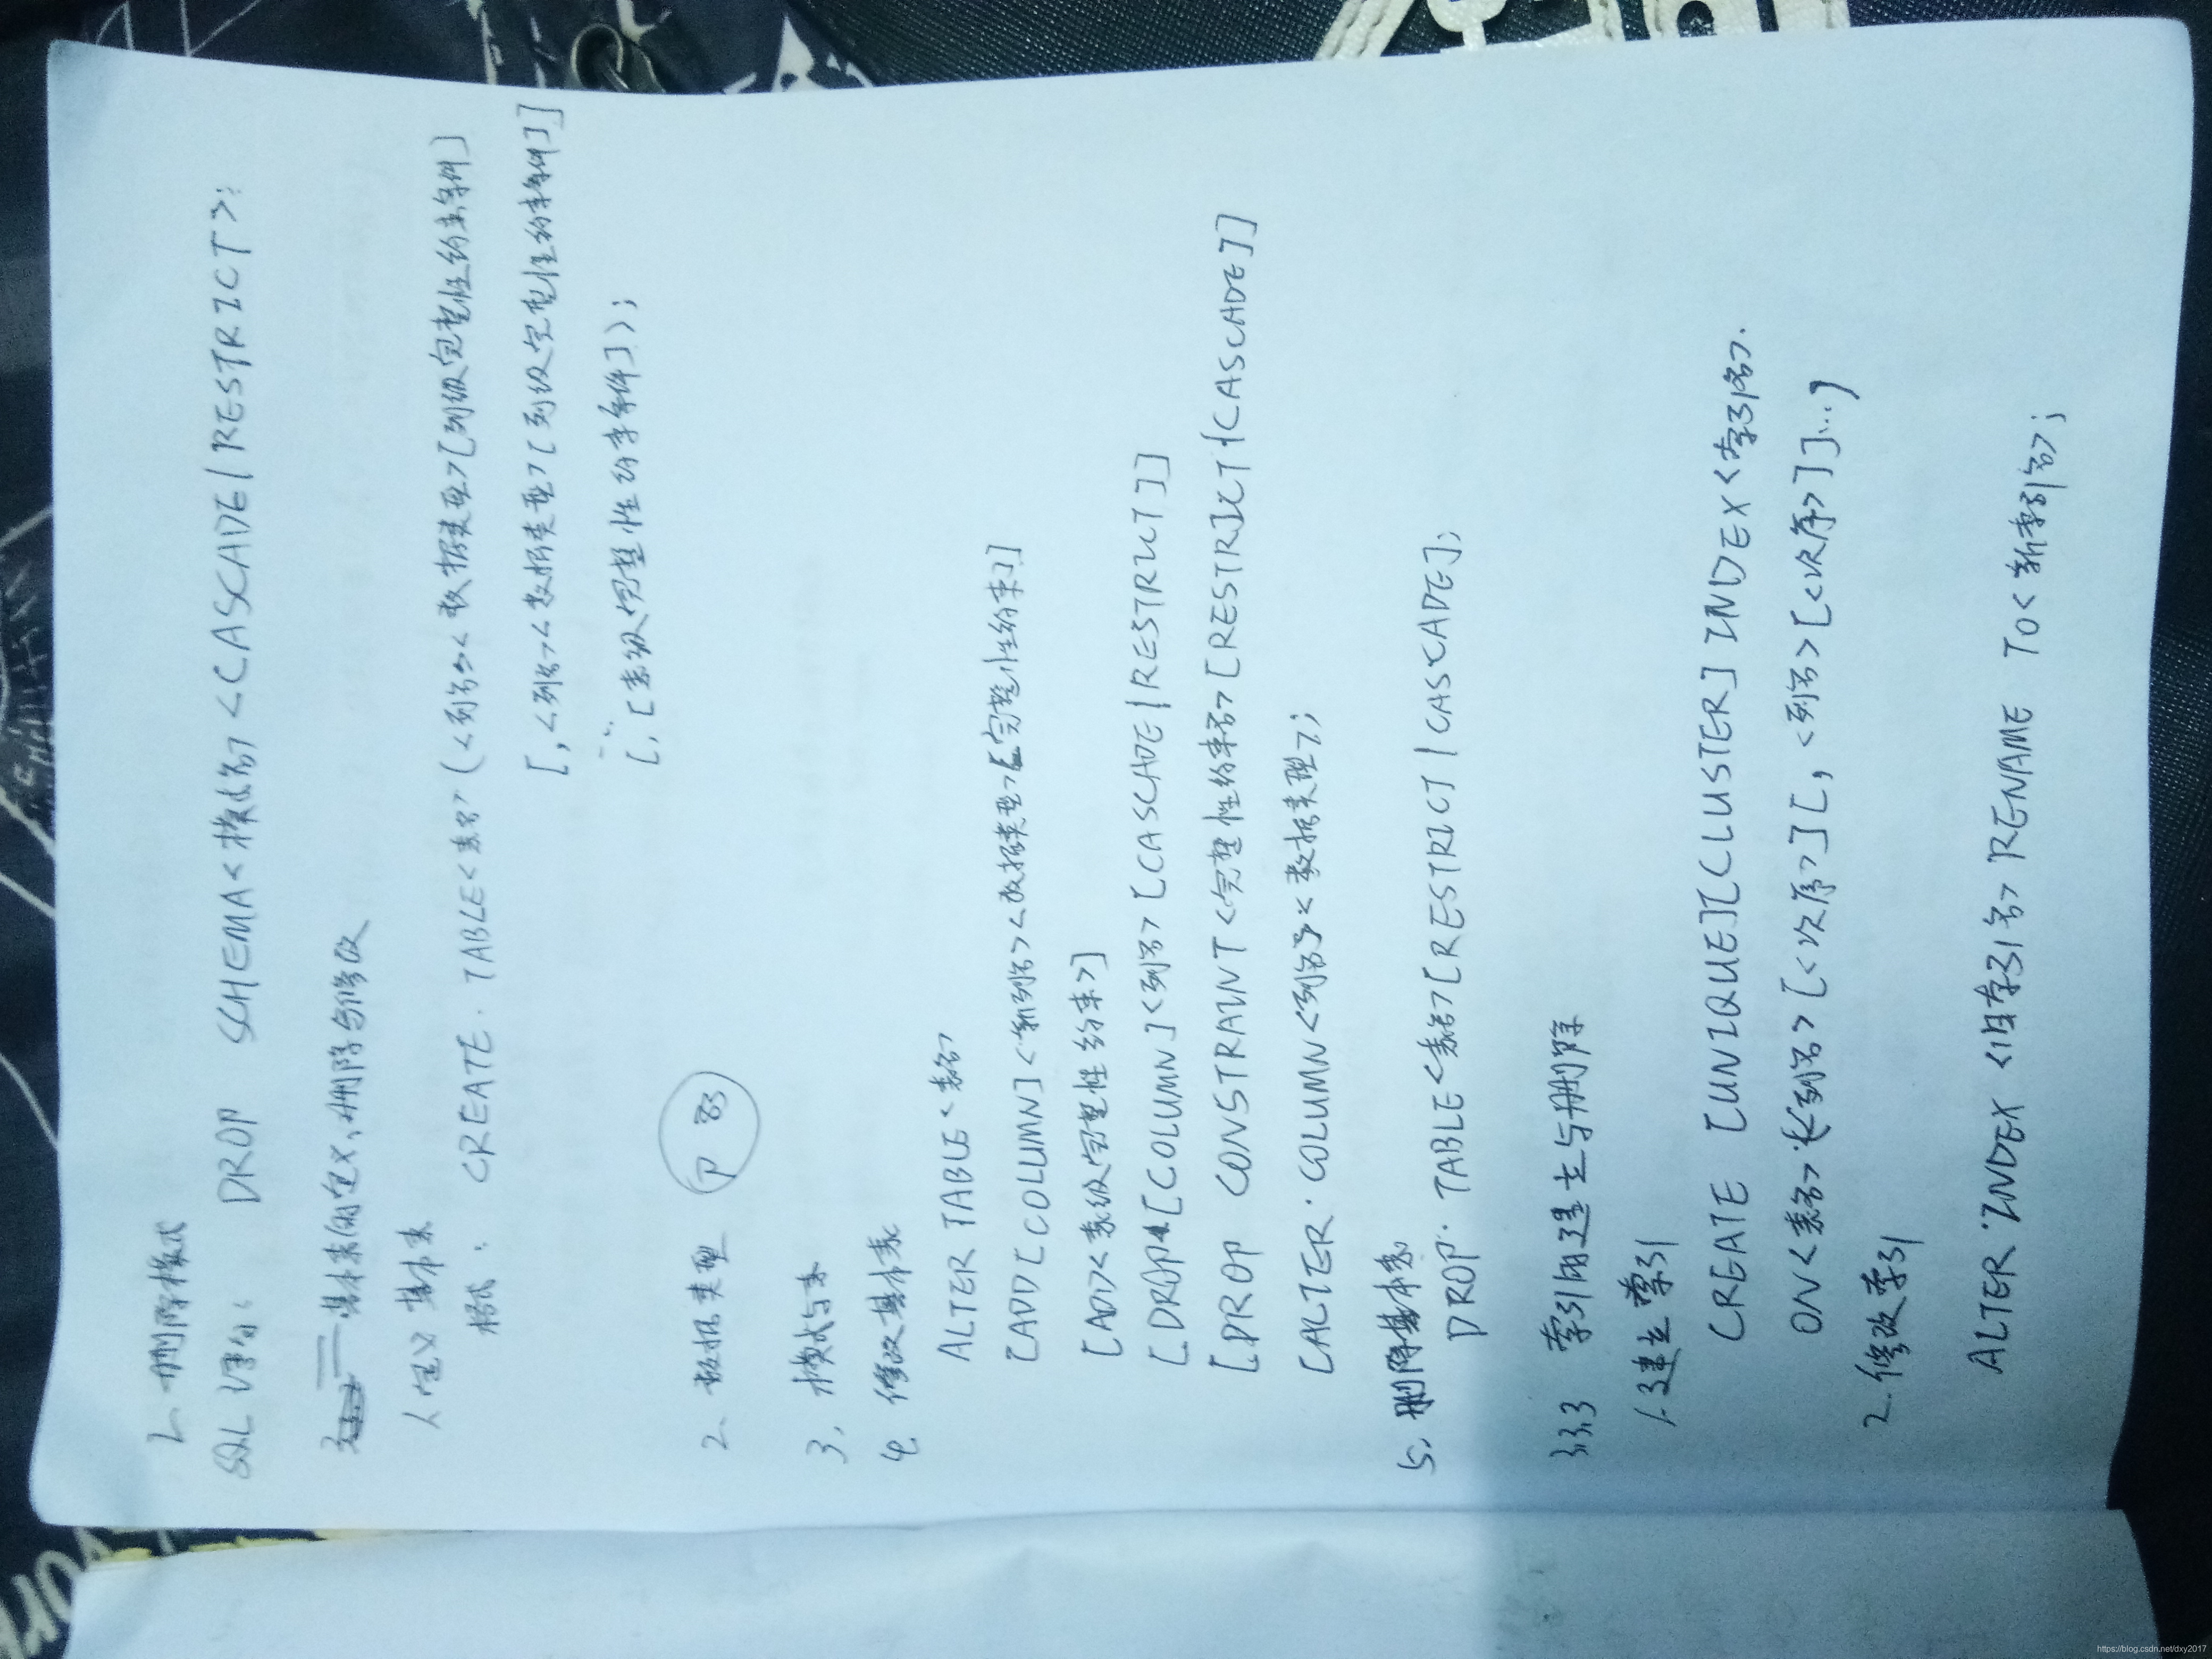 2. 删除模式
SQL语句: DROP SCHEMA<模式名><CASCADE|RESTRICT>;
二 基本表的定义,删除与修改
1 定义基本表
格式. CREATE. TABLE<表名>(<列名><数据类型>[列级完整性约束条件]
[,<列名><数据类型>[列级完整性约束条件]]
...
[,[表级完整性约束条件]);
2. 数据类型 P 83
3、模式与表
4. 修改基本表
ALTER TABLE<表名>
[ADD[COLUMN]<新列名><数据类型>[完整性约束]]
[ADD<表级完整性约束>]
[DROP[COLUMN]<列名>[CASCADE|RESTRICT]]
[DROP CONSTRAINT<完整性约束名>[RESTRICT|CASCADE]]
[ALTER.COLUMN<列名><数据类型>];
5. 删除基本表
DROP. TABLE<表名>[RESTRICT|CASCADE];
3.3.3 索引的建立与删除
1.建立索引
CREATE [UNIQUE][CLUSTER]INDEX<索引名>.
ON<表名>(<列名>[<次序>][,<列名>[<次序>]]...)
2.修改索引
ALTER.INDEX <旧索引名> RENAME TO<新索引名>;
https://blog.csdn.net/dxy2017